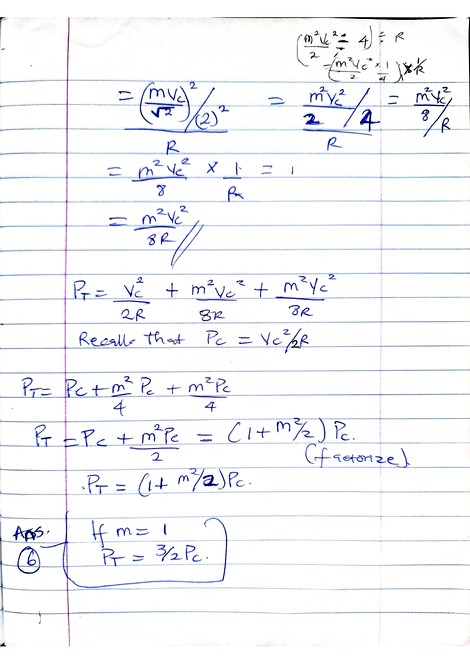 (m²Vc²/2 ÷ 4) ÷ R
= (m²Vc²/2 × 1/4) × 1/R
= (mVc/√2)²/(2)² / R = m²Vc²/2 / 4 / R = m²Vc²/8 / R
= m²Vc²/8 × 1/R = 1
= m²Vc²/8R //
PT = Vc²/2R + m²Vc²/8R + m²Vc²/8R
Recall that Pc = Vc²/2R
PT = Pc + m²/4 Pc + m²Pc/4
PT = Pc + m²Pc/2 = (1 + m²/2) Pc.
(factorize).
.PT = (1 + m²/2)Pc.
Ans. If m = 1
6 PT = 3/2 Pc.